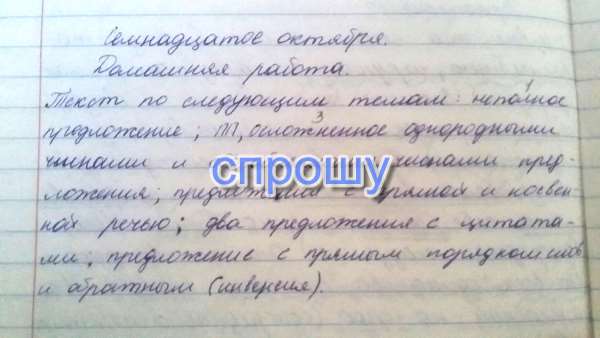 Семнадцатое октября.
Домашняя работа.
Текст по следующим темам: неполное
предложение; ПП, осложненное однородными
членами и членами пред-
спрошу
ложения; предложения с прямой и косвен-
ной речью; два предложения с цитата-
ми; предложение с прямым порядком слов
и обратным (инверсия).